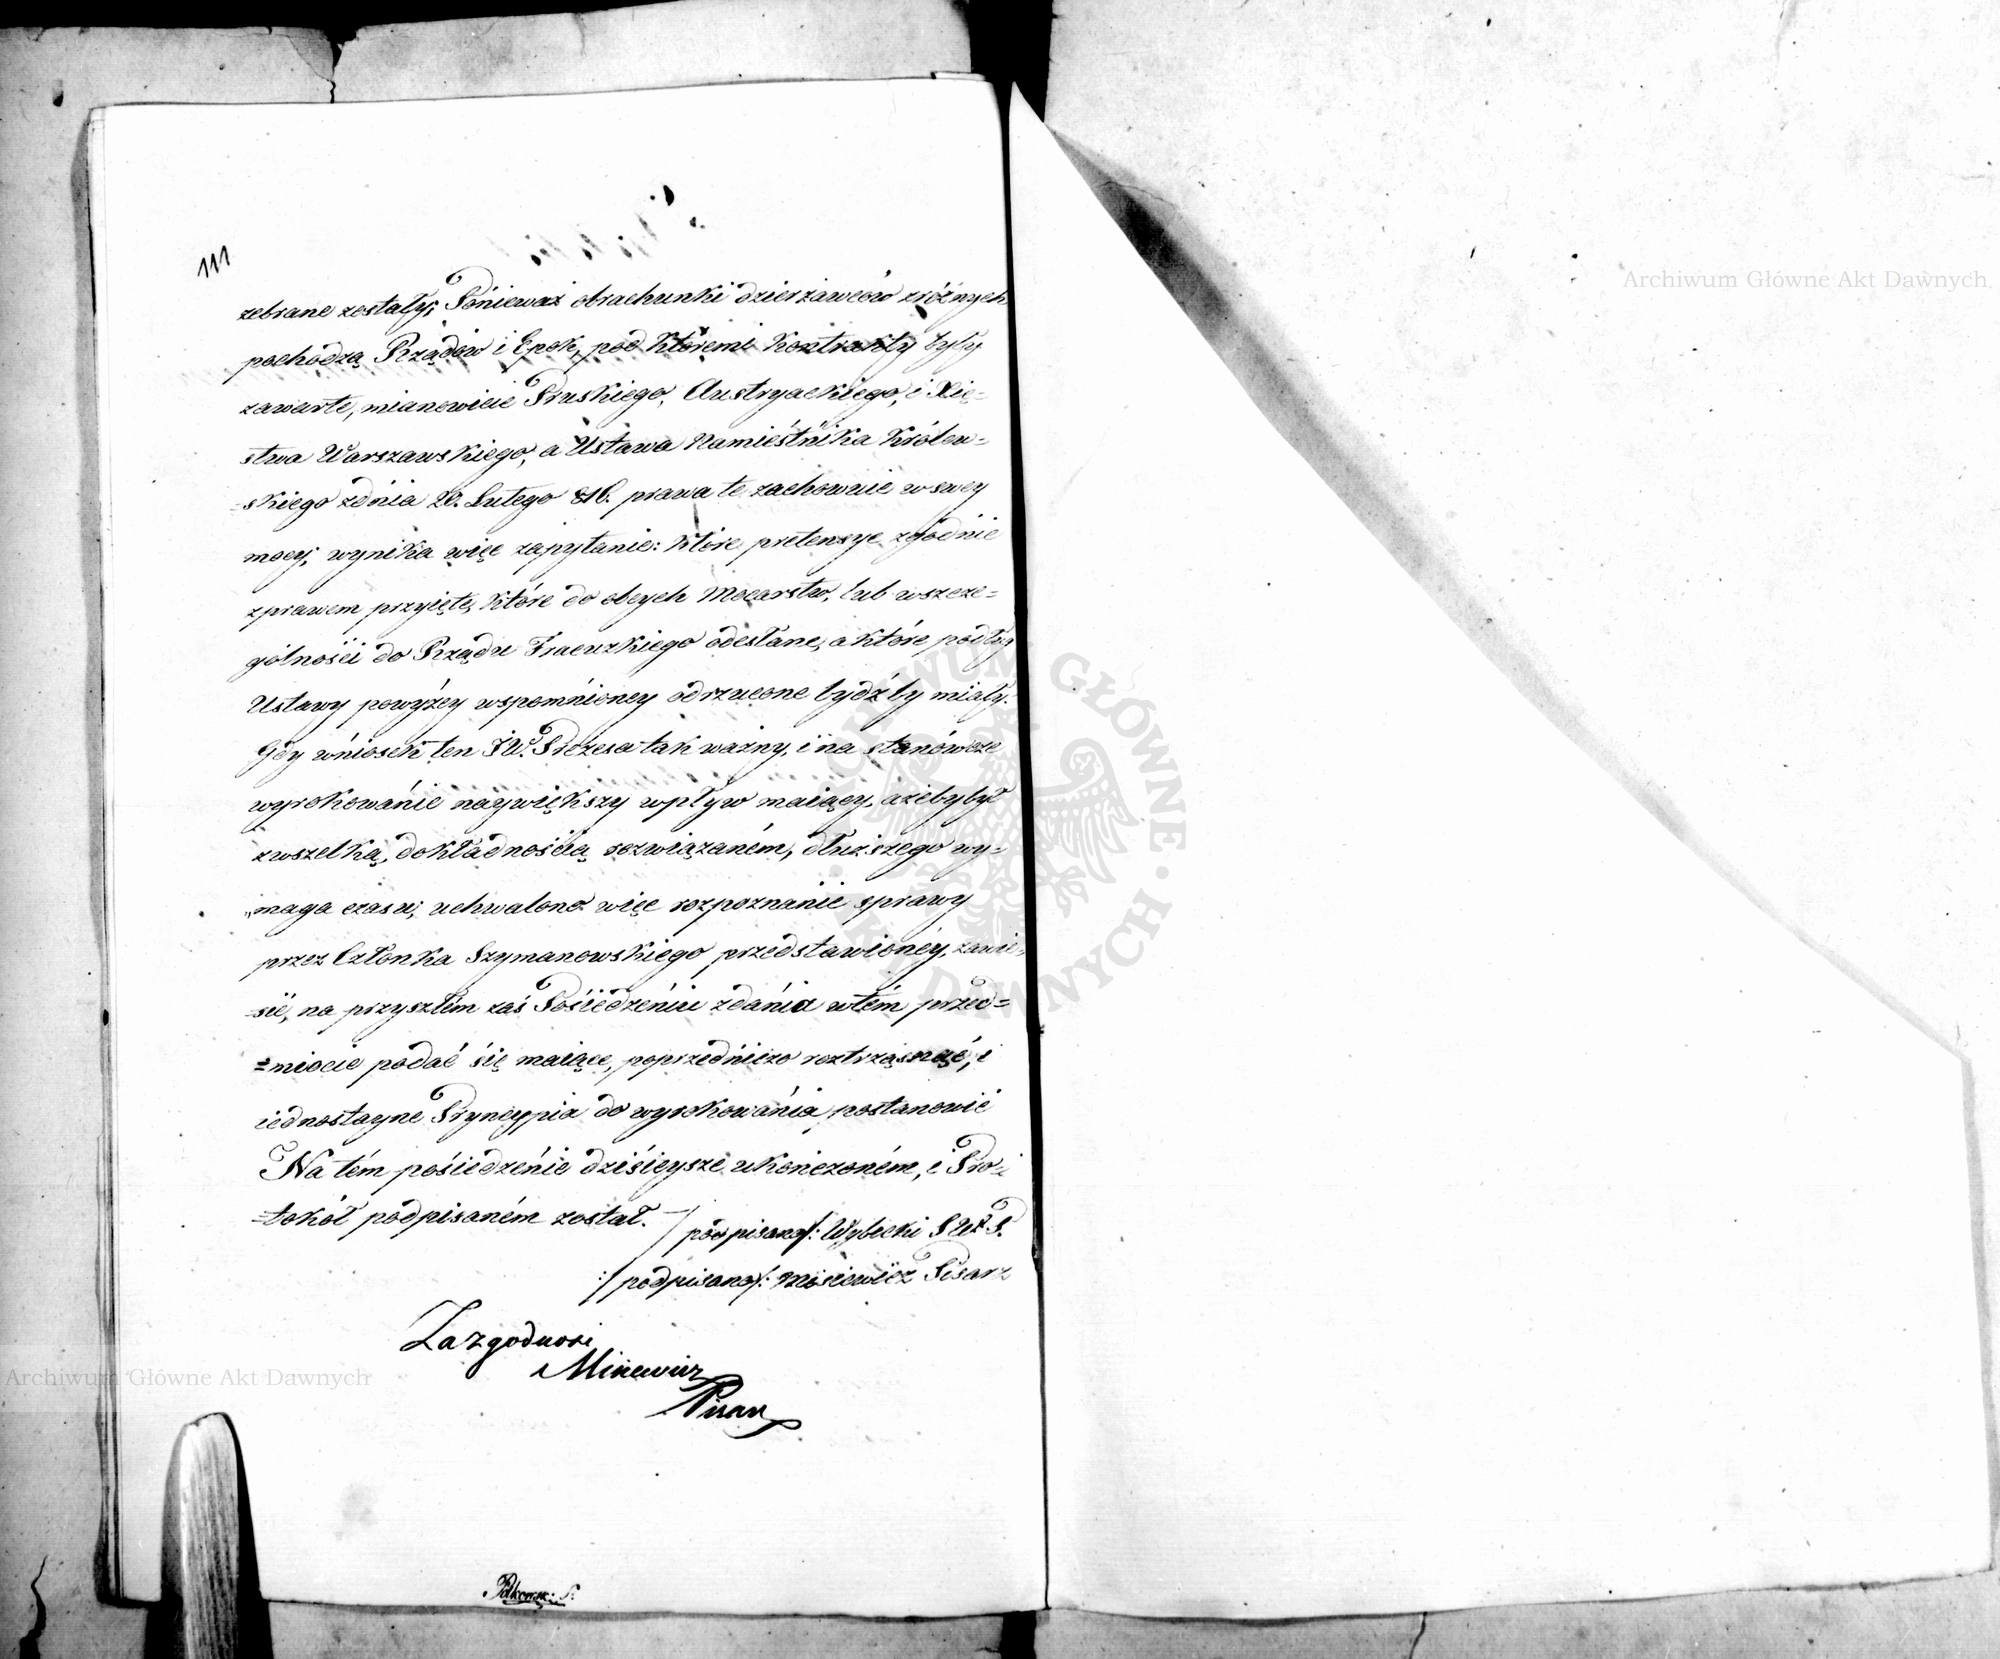 111
zebrane zostały; Pońieważ obrachunki dzierżawców zróżnych
pochodzą Rządów i Epok, pod któremi kontrakty były
zawarte, mianowicie Pruskiego, Austryackiego, i Xię=
stwa Warszawskiego, a Ustawa Namieśtńika Królew=
=skiego zdnia 20. Lutego 816. prawa te zachowuie w swey
mocy; wynika więc zapytanie: które pretensye zgódnie
zprawem przyięte, które do obcych Mocarstw, lub wszcze=
gólnośći do Rządu Francuzkiego odesłane, a które podług
Ustawy powyżey wspomńioney odrzucone bydź by miały.
Gdy wńiosek ten JW. Prezesa tak ważny, i na stanówcze
wyrokowańie naywiększy wpływ maiący, ażeby był
zwszelką dokładnośćią rozwiązaném, dłuższego wy=
„maga czasu; uchwalono więc rozpoznanie sprawy
przez Członka Szymanowskiego przedstawionéy, zawie=
=sić, na przyszłém zaś Pośiedzéńiu zdańia wtém przed=
=miocie podać śię maiące, poprzedńiczo roztrząsnąć, i
iednostayne Pryncypia do wyrokowańia postanowić
Na tém pośiedzéńie dziśieysze ukończoném, i Pro=
=tokół podpisaném został.
/podpisano/: Wybicki S W. P.
:/podpisano/: Pisarz
Za zgodnosc
Pisarz
Archiwum Główne Akt Dawnych
Archiwum Główne Akt Dawnych
ARCHIWUM GŁÓWNE AKT DAWNYCH